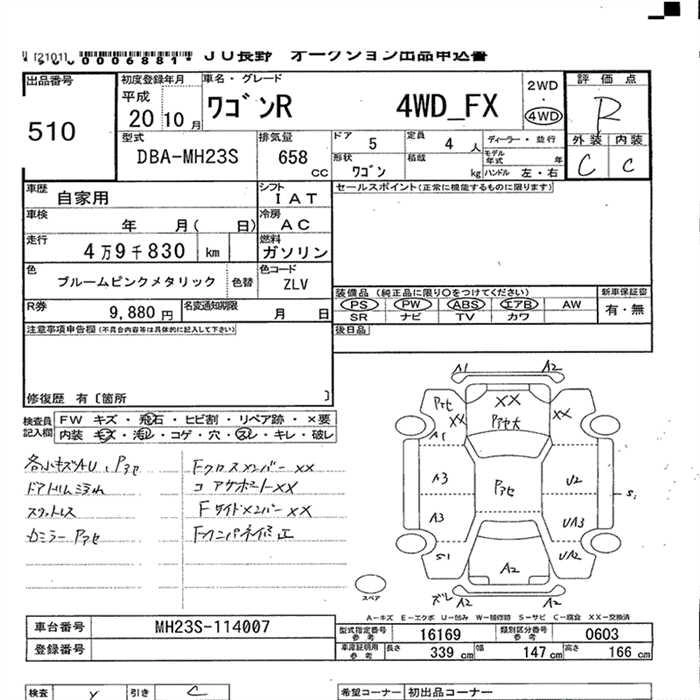 [2101] 0006881 JU長野 オークション出品申込書
出品番号 初度登録年月 車名・グレード 2WD 評価点
510 平成 20 10 月 ワゴンR 4WD_FX ・ 4WD R
外装 内装
C C
型式 排気量 ドア 5 定員 4 人 ディーラー・並行
DBA-MH23S 658 CC 形状 ワゴン 積載 kg モデル年式 年 ハンドル 左・右
車歴 自家用 シフト IAT セールスポイント(正常に機能するものに限ります)
車検 年 月( 日) 冷房 AC
走行 4万9千830 km 燃料 ガソリン
色 ブルームピンクメタリック 色替 色コード ZLV
装備品(純正品に限り○をつけてください) 新車保証書
PS PW ABS エアB AW 有・無
SR ナビ TV カワ
R券 9,880円 名変通知期限 月 日
後日品
注意事項申告欄(不具合内容等は具体的に記入して下さい)
修復歴 有〔箇所 〕
検査員記入欄 FW キズ・飛石・ヒビ割・リペア跡・×要
内装 キズ・汚レ・コゲ・穴・スレ・キレ・破レ
各小キズAU、Pアセ Fクロスメンバー XX
ドアトリム汚れ コアサポートXX
スカッフレス Fサイドメンバー XX
Pアセ Fインパネ修正
A1 A2
Pアセ XX XX XX
A1 Pアセ大
A3 Pアセ U2
S1
A3 UA3
S1 A2 UA2
ズレ A2 A2
スペア
A-キズ E-エクボ U-凹み W-補修跡 S-サビ C-腐食 XX-交換済
車台番号 MH23S-114007 型式指定番号 参考 16169 類別区分番号 参考 0603
登録番号 車庫証明用 参考 長さ 339 cm 幅 147 cm 高さ 166 cm
検査 Y 引き C 希望コーナー 初出品コーナー